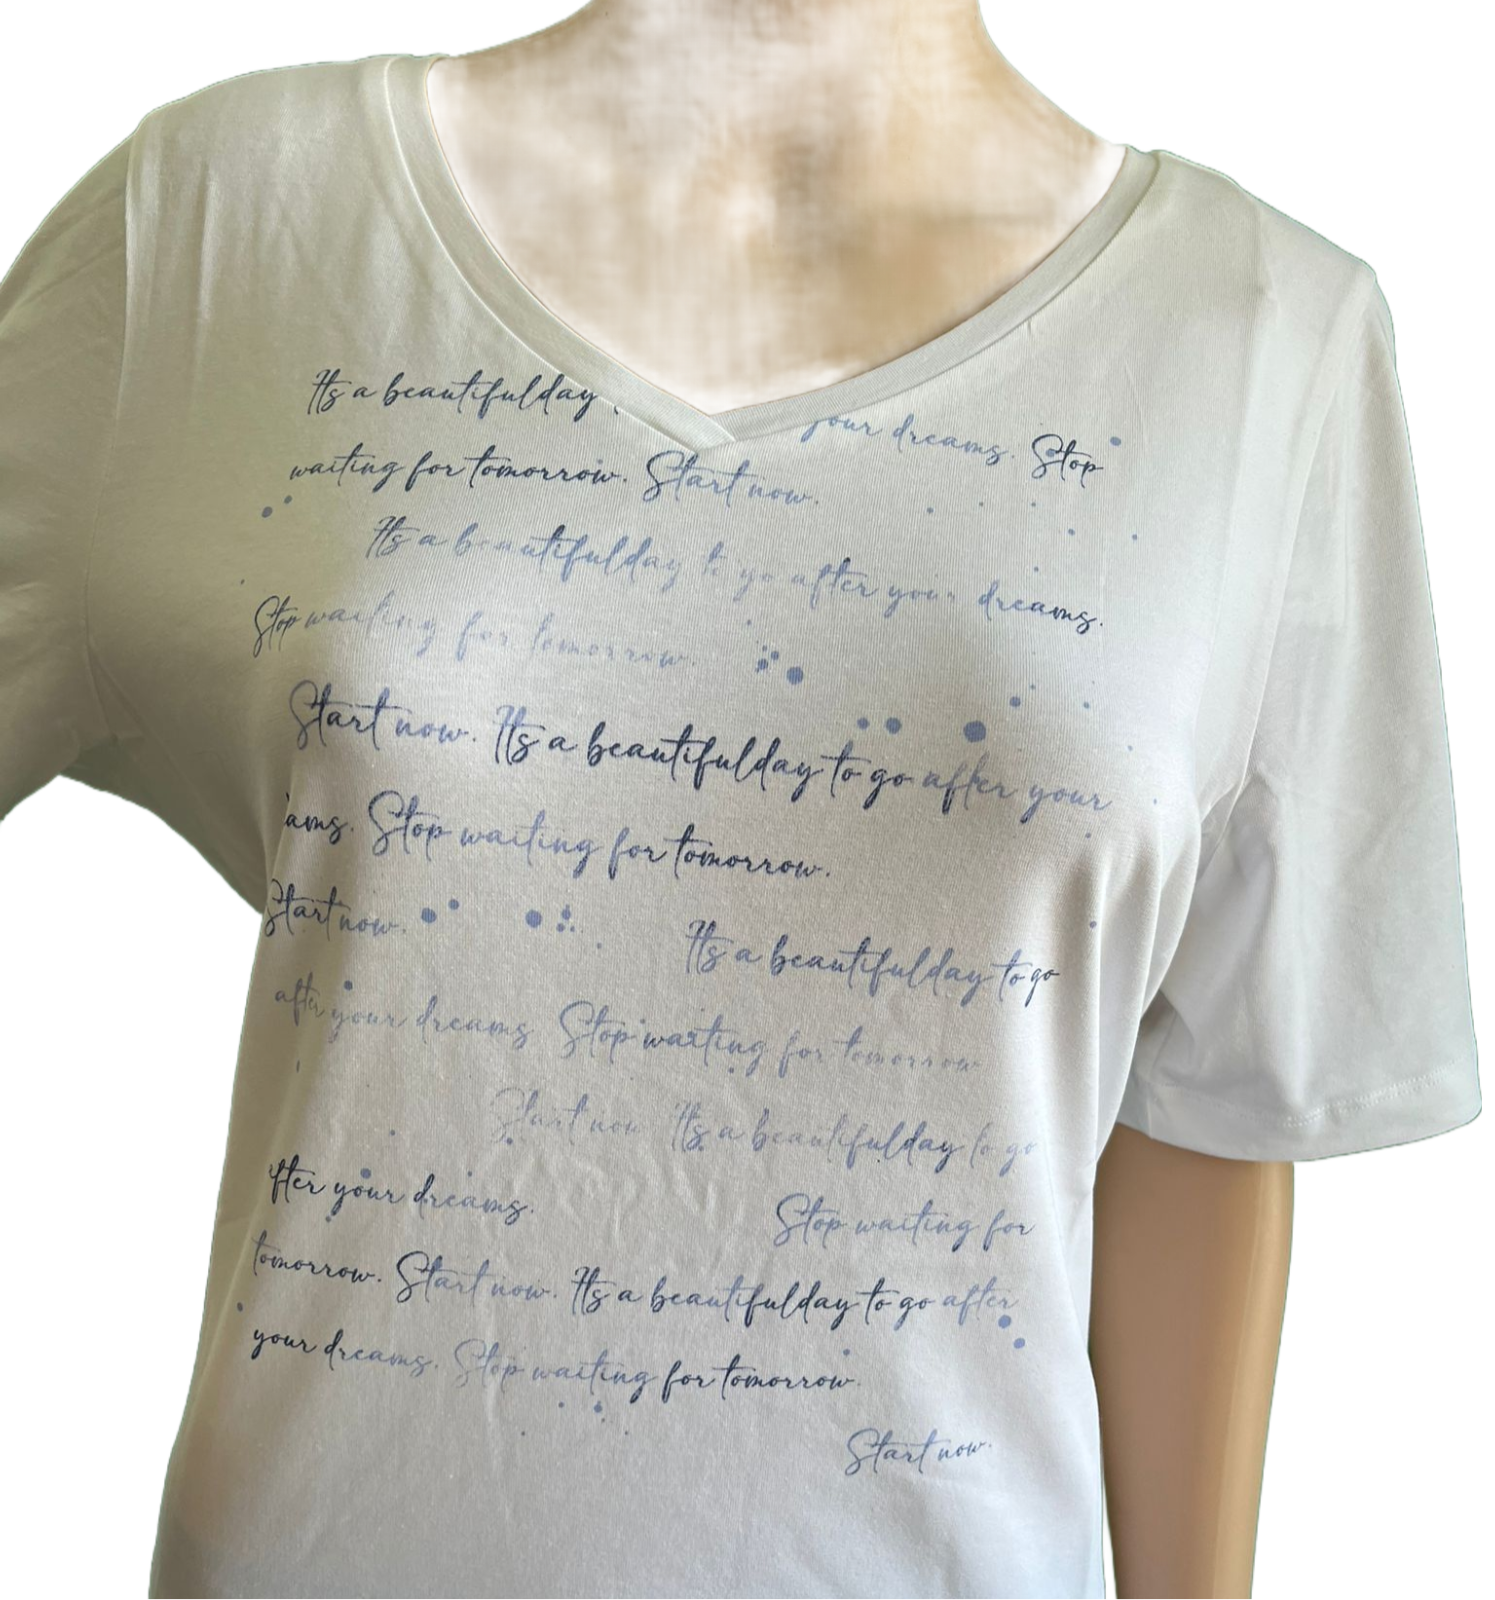 Its a beautifulday your dreams. Stop
waiting for tomorrow. Start now.
Its a beautifulday to go after your dreams.
Stop waiting for tomorrow.
Start now. Its a beautifulday to go after your
ams. Stop waiting for tomorrow.
Start now.
Its a beautifulday to go
after your dreams Stop waiting for tomorrow
Start now Its a beautifulday to go
fter your dreams.
Stop waiting for
tomorrow. Start now. Its a beautifulday to go after
your dreams. Stop waiting for tomorrow.
Start now.